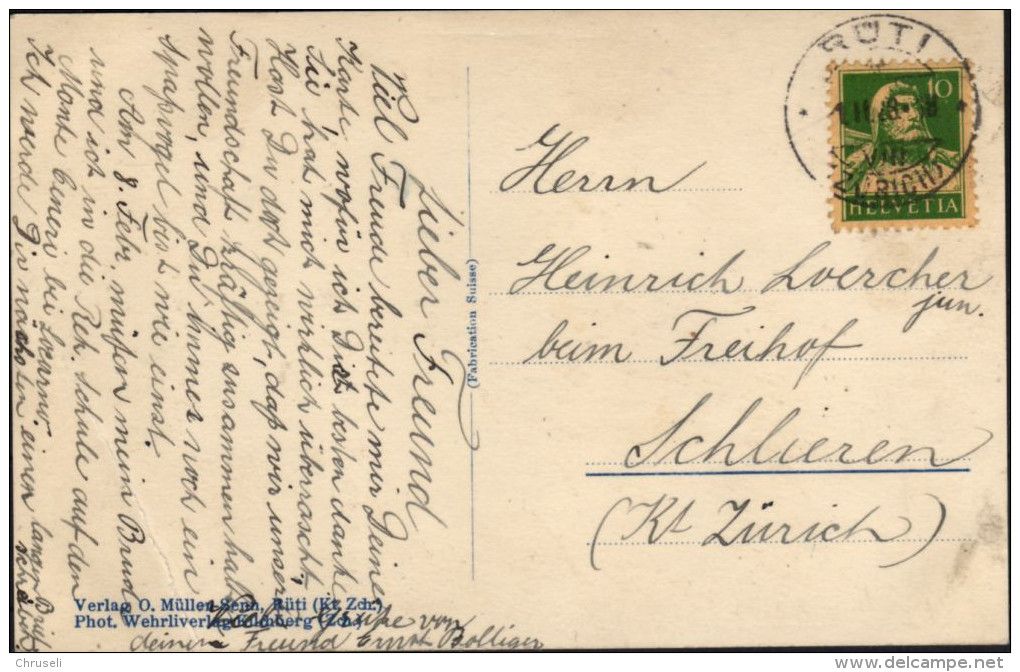 Lieber Freund
Viel Freude bereitete mir Deine
Karte wofür ich Dir bestens danke
Sie hat mich wirklich überrascht,
Hast Du dort gezeigt, daß wir unsere
Freundschaft kräftig zusammen halten
wollen, und Du immer noch ein
Spaßvogel bist wie einst.
Am 8. Febr. müßen mein Bruder
und ich in die Rek. Schule auf den
Monte Ceneri bei Locarno.
Ich werde Dir nachher einen
langen Brief
senden.
Grüße von
deinem Freund Ernst Bolliger
(Fabrication Suisse)
Verlag O. Müller-Senn, Rüti (Kt. Zch.)
Phot. Wehrliverlag Kilchberg (Zch.)
RÜTI
(ZÜRICH)
10
HELVETIA
Herrn
Heinrich Loercher
jun.
beim Freihof
Schlieren
(Kt. Zürich)
© Chruseli
www.delcampe.net